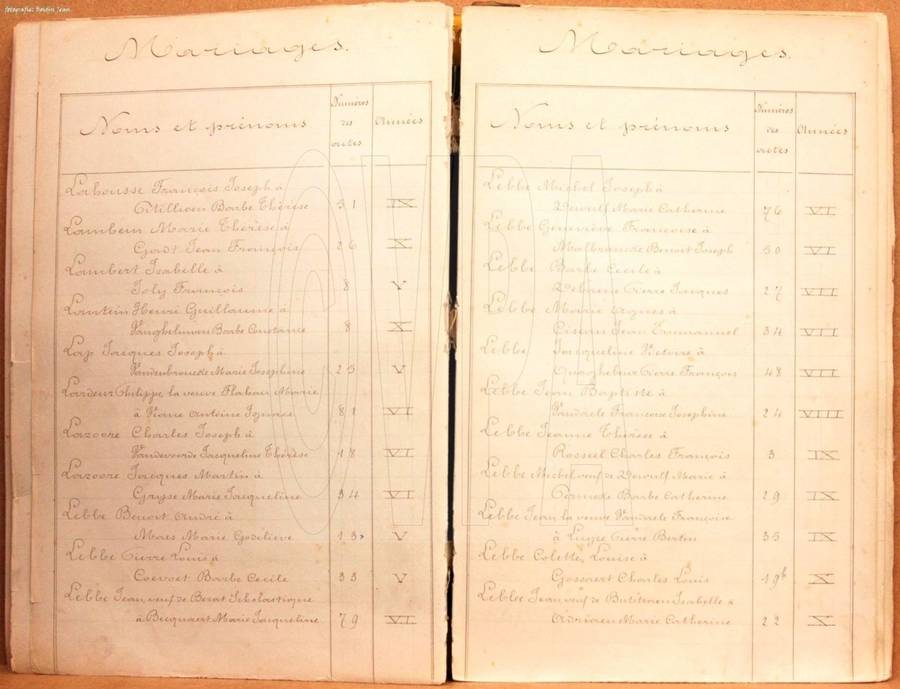 fotografies Bordin Jean
Mariages.
Noms et prénoms
Numéros des actes
Années
Lahousse François Joseph à
Barbe Thérèse 31 IX
Lambein Marie Thérèse à
Godt Jean François 26 X
Lambert Isabelle à
Joly François 8 V
Lantein Henri Guillaume à
Vanghelinven Barbe Constance 8 X
Lap Jacques Joseph à
Vandenbrouecke Marie Josephine 25 V
Philippe, la veuve Plateau Marie
à Antoine Ignace 81 VI
Lazoore Charles Joseph à
Vandevoorde Jacqueline Thérèse 18 VI
Lazoore Jacques Martin à
Gryse Marie Jacqueline 34 VI
Lebbe Benoit André à
Maes Marie Godelieve 13 V
Lebbe Pierre Louis à
Coevoet Barbe Cecile 33 V
Lebbe Jean, veuf de Scholastique
à Becquaert Marie Jacqueline 79 VI
Mariages.
Noms et prénoms
Numéros des actes
Années
Lebbe Michel Joseph à
Dewulf Marie Catherine 76 VI
Lebbe Geneviève Françoise à
Malbrancke Benoit Joseph 50 VI
Lebbe Barbe Cecile à
Debrune Pierre Jacques 27 VII
Lebbe Marie Agnès à
Jean Emmanuel 34 VII
Lebbe Jacqueline Victoire à
Quaghebeur Pierre François 48 VII
Lebbe Jean Baptiste à
Vandaele Françoise Josephine 24 VIII
Lebbe Jeanne Thérèse à
Rosseel Charles François 3 IX
Lebbe Michel, veuf de Dewulf Marie à
Barbe Catherine 29 IX
Lebbe Jean la veuve Vandaele Françoise
à Pierre Bertin 35 IX
Lebbe Colette, Louise à
Gossaert Charles Louis 19b X
Lebbe Jean, veuf de Isabelle à
Adriaen Marie Catherine 22 X